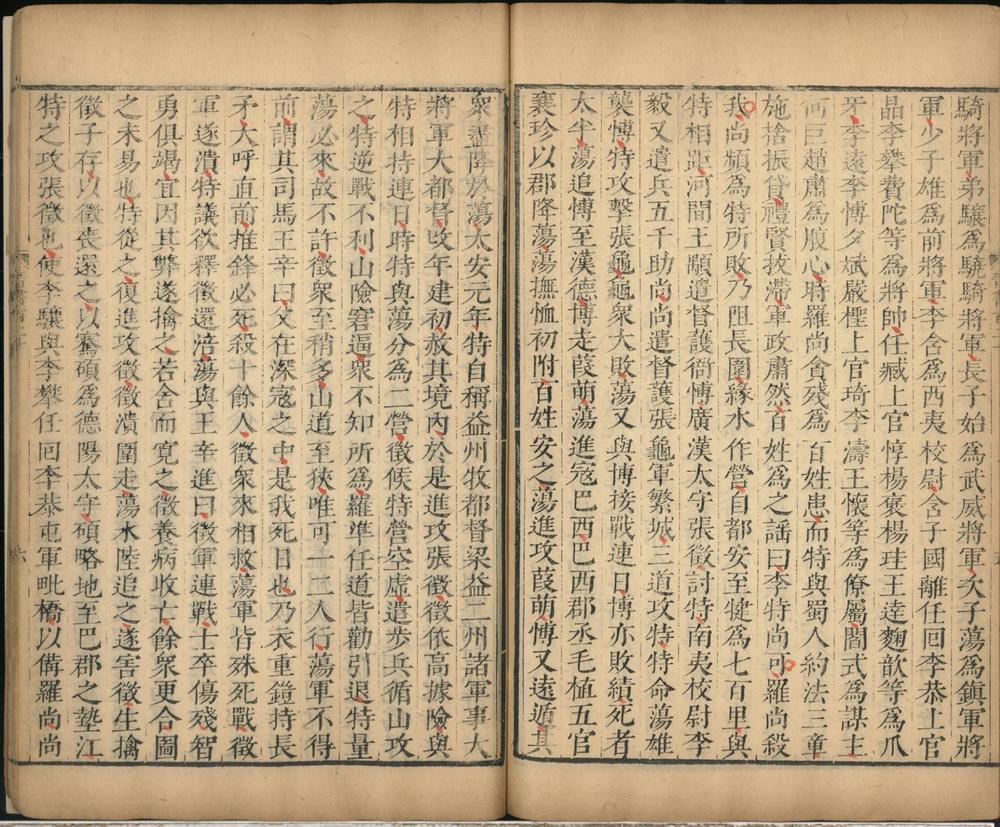 騎將軍弟驤為驍騎將軍長子始為武威將軍次子蕩為鎮軍將
軍少子雄為前將軍李含為西夷校尉含子國離任回李恭上官
晶李攀費陀等為將帥任臧上官惇楊褒楊珪王達麴歆等為爪
牙李遠李博夕斌嚴檉上官琦李濤王懷等為僚屬閻式為謀主
何巨趙肅為腹心時羅尚貪殘為百姓患而特與蜀人約法三章
施捨振貸禮賢拔滯軍政肅然百姓為之謠曰李特尚可羅尚殺
我尚頻為特所敗乃阻長圍緣水作營自都安至犍為七百里與
特相距河間王顒遣督護衙博廣漢太守張徵討特南夷校尉李
毅又遣兵五千助尚尚遣督護張龜軍繁城三道攻特特命蕩雄
襲博特攻擊張龜龜眾大敗蕩又與博接戰連日博亦敗績死者
太半蕩追博至漢德博走葭萌蕩進寇巴西巴西郡丞毛植五官
襄珍以郡降蕩蕩撫恤初附百姓安之蕩進攻葭萌博又遠遁其
眾盡降於蕩太安元年特自稱益州牧都督梁益二州諸軍事大
將軍大都督改年建初赦其境內於是進攻張徵徵依高據險與
特相持連日時特與蕩分為二營徵候特營空虛遣步兵循山攻
之特逆戰不利山險窘逼眾不知所為羅準任道皆勸引退特量
蕩必來故不許徵眾至稍多山道至狹唯可一二人行蕩軍不得
前謂其司馬王辛曰父在深寇之中是我死日也乃衣重鎧持長
矛大呼直前推鋒必死殺十餘人徵眾來相救蕩軍皆殊死戰徵
軍遂潰特議欲釋徵還涪蕩與王辛進曰徵軍連戰士卒傷殘智
勇俱竭宜因其弊遂擒之若舍而寬之徵養病收亡餘眾更合圖
之未易也特從之復進攻徵徵潰圍走蕩水陸追之遂害徵生擒
徵子存以徵喪還之以騫碩為德陽太守碩略地至巴郡之墊江
特之攻張徵也使李驤與李攀任回李恭屯軍毗橋以備羅尚尚